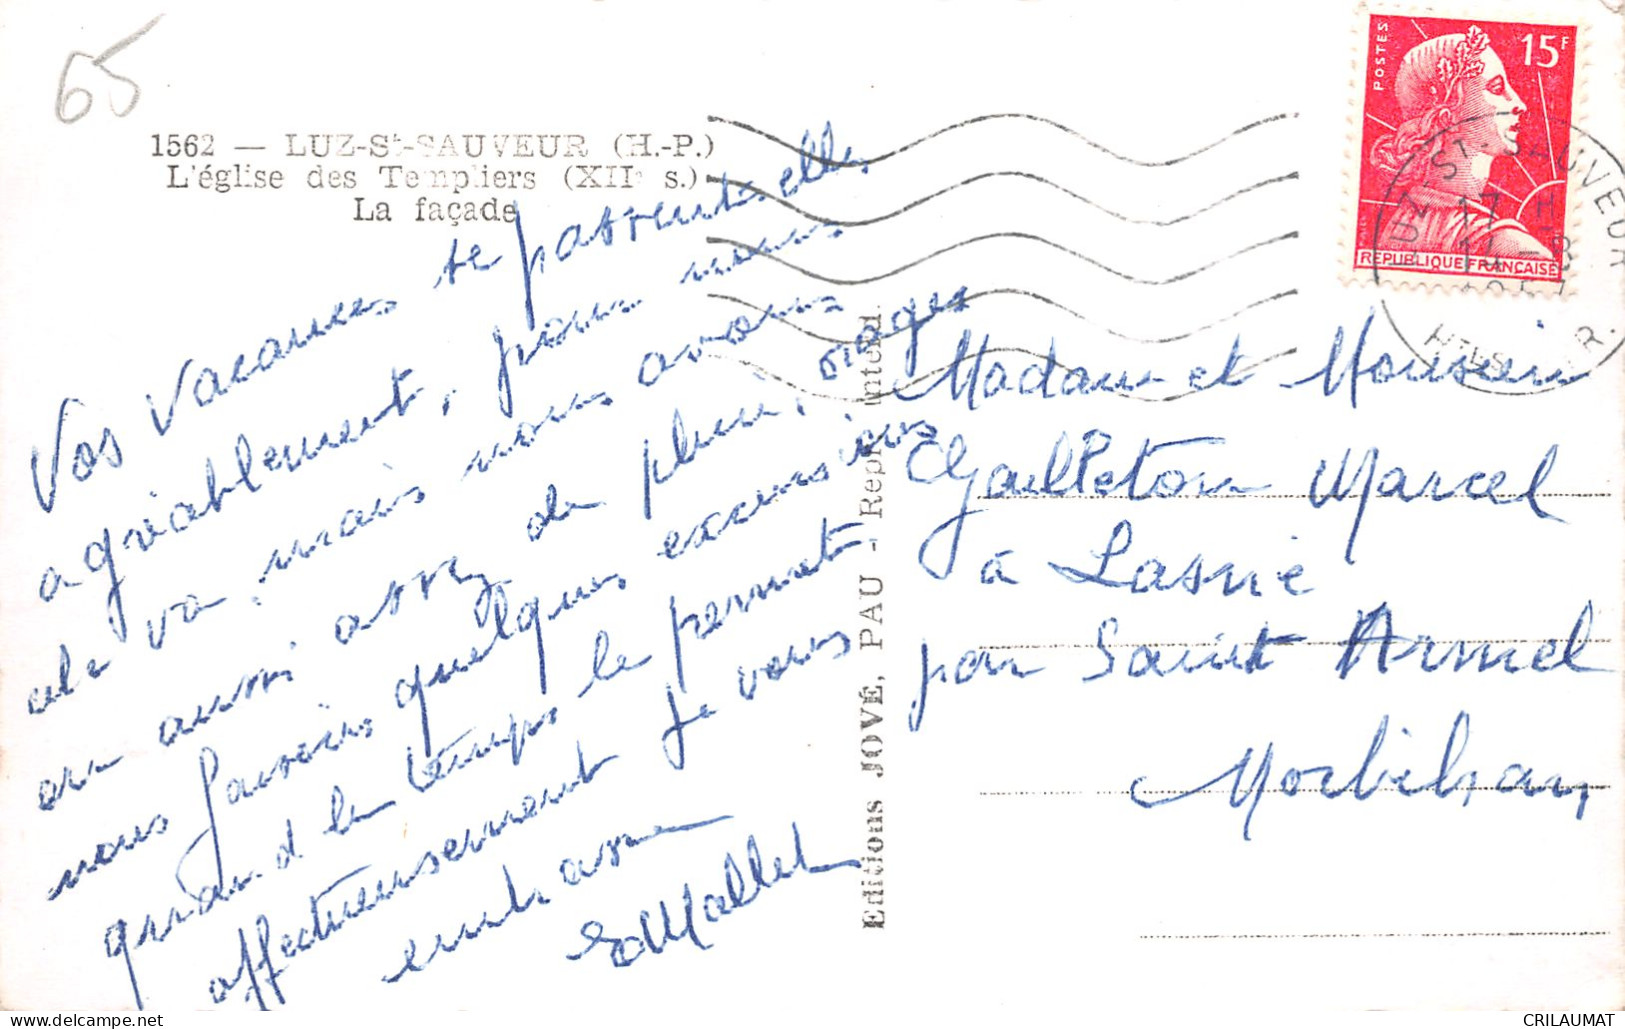 65
1562 — LUZ-St-SAUVEUR (H.-P.)
L'église des Templiers (XIIe s.)
La façade
Vos vacances se passent-elles
agréablement, pour nous
cela va, mais nous avons
eu aussi assez de pluie, orages
nous faisons quelques excursions
quand le temps le permet.
affectueusement je vous
embrasse
Mallet
Editions JOVÉ, PAU - Repr. interd.
POSTES
15F
REPUBLIQUE FRANÇAISE
LUZ-ST-SAUVEUR
17 H
12 - 8
1957
HTES PYR.
Madame et Monsieur
Gailleton Marcel
à Lasné
par Saint Armel
Morbihan
CRILAUMAT